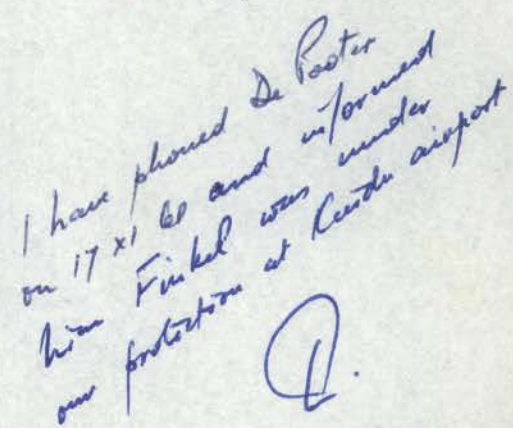 I have phoned De Pooter
on 17 XI 60 and informed
him Finkel was under
our protection at airport